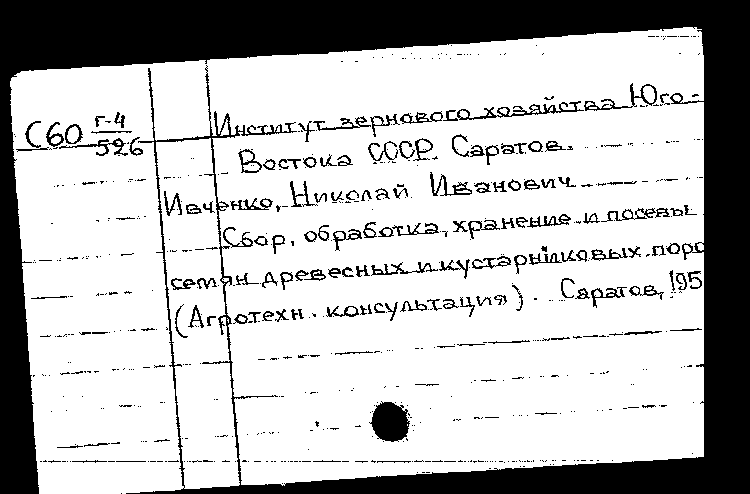 С60 г-4/526
Институт зернового хозяйства Юго-
Востока СССР. Саратов.
Ивченко, Николай Иванович
Сбор, обработка, хранение и посевы
семян древесных и кустарниковых поро
(Агротехн. консультация). Саратов, 195